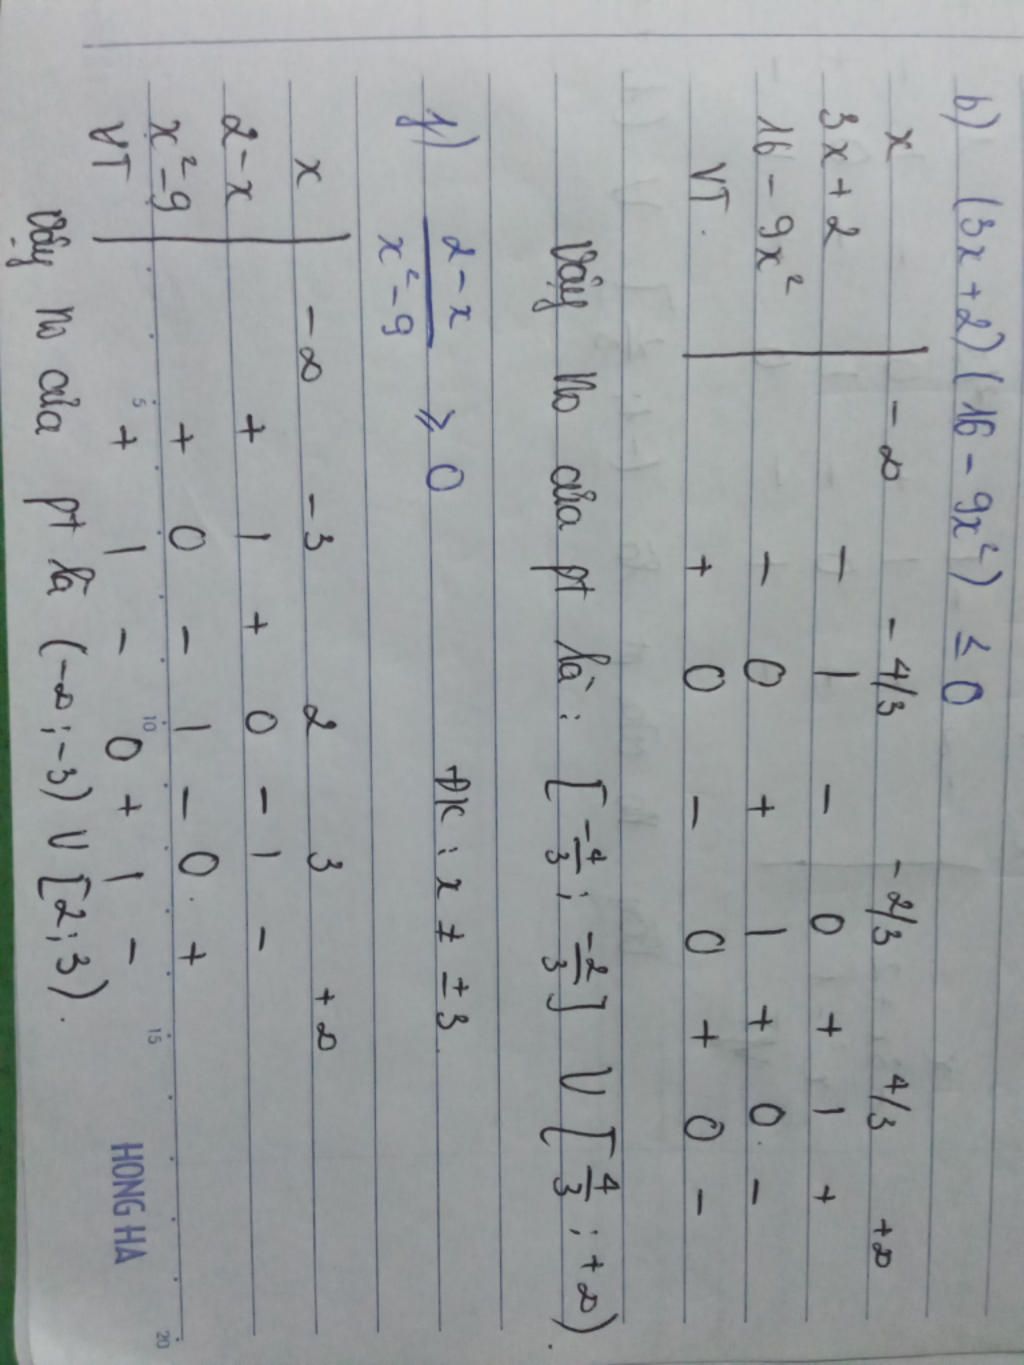 b) (3x+2)(16-9x²) ≤ 0
x -∞ -4/3 -2/3 4/3 +∞
3x+2 - | - 0 + | +
16-9x² - 0 + | + 0 -
VT + 0 - 0 + 0 -
Vậy no của pt là: [-4/3; -2/3] U [4/3; +∞).
f) 2-x / x²-9 ≥ 0 ĐK: x ≠ ±3
x -∞ -3 2 3 +∞
2-x + | + 0 - | -
x²-9 + 0 - | - 0 +
VT + | - 0 + | -
Vậy no của pt là (-∞; -3) U [2; 3).
5 10 15 20
HONG HA